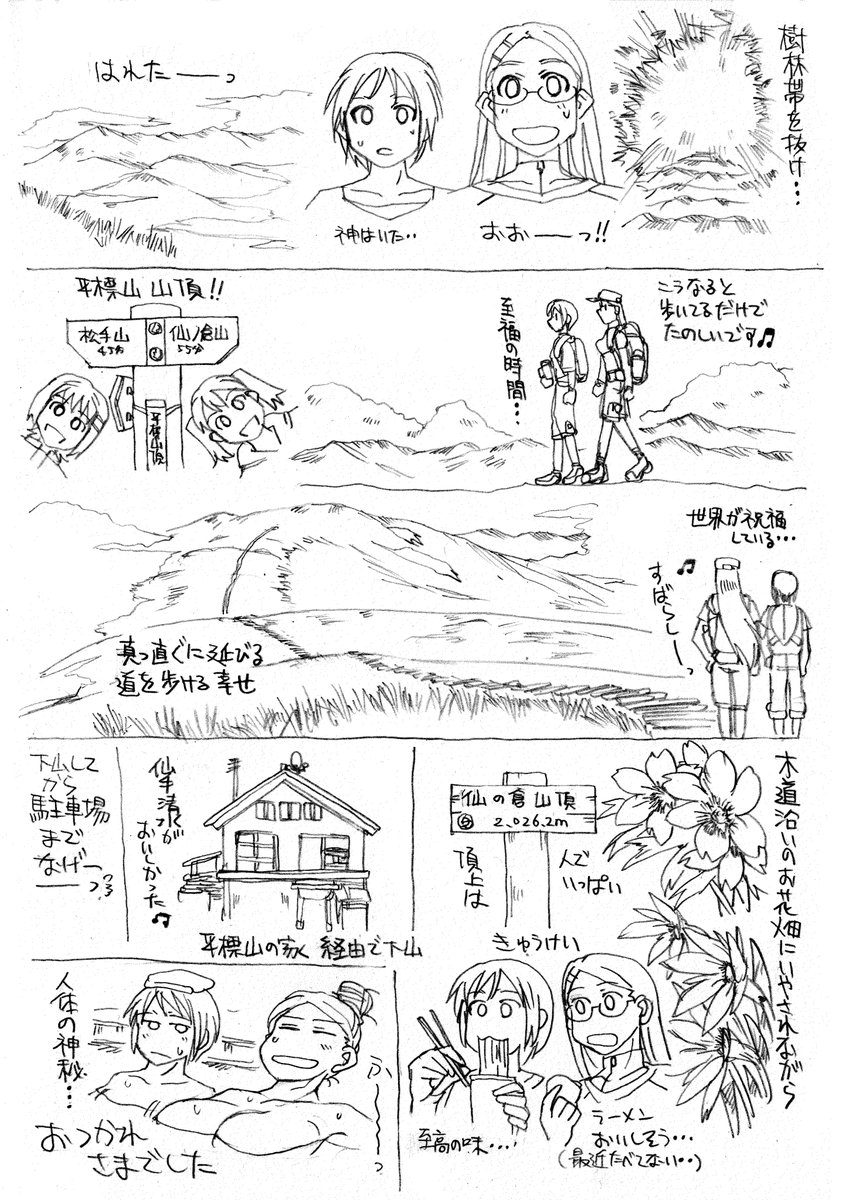 樹林帯を抜け…
おおーーっ!!
神はいた‥
はれたーーっ
こうなると
歩いてるだけで
たのしいです♫
至福の時間…
平標山 山頂!!
松手山
45分
仙ノ倉山
55分
平標山頂
世界が祝福
している…
すばらしーーっ
♫
真っ直ぐに延びる
道を歩ける幸せ
木道沿いのお花畑にいやされながら
仙の倉山頂
2,026.2m
頂上は
人で
いっぱい
仙平清水が
おいしかった♫
平標山の家 経由で下山
下山して
から
駐車場
まで
なげーーっ
きゅうけい
至高の味‥‥
ラーメン
おいしそう…
(最近たべてない‥)
人体の神秘…
ふ〜〜っ
おつかれ
さまでした